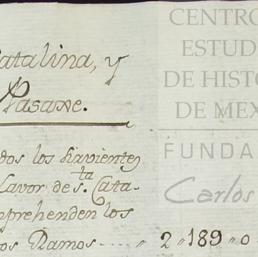 atalina, y
Pasaxe.
dos los havientes
lavor de sta Cata-
mprehenden los
os Ramos---- " 2 " 189 " 0
CENTRO
ESTUD
DE HISTO
DE MEX
FUNDA
Carlos